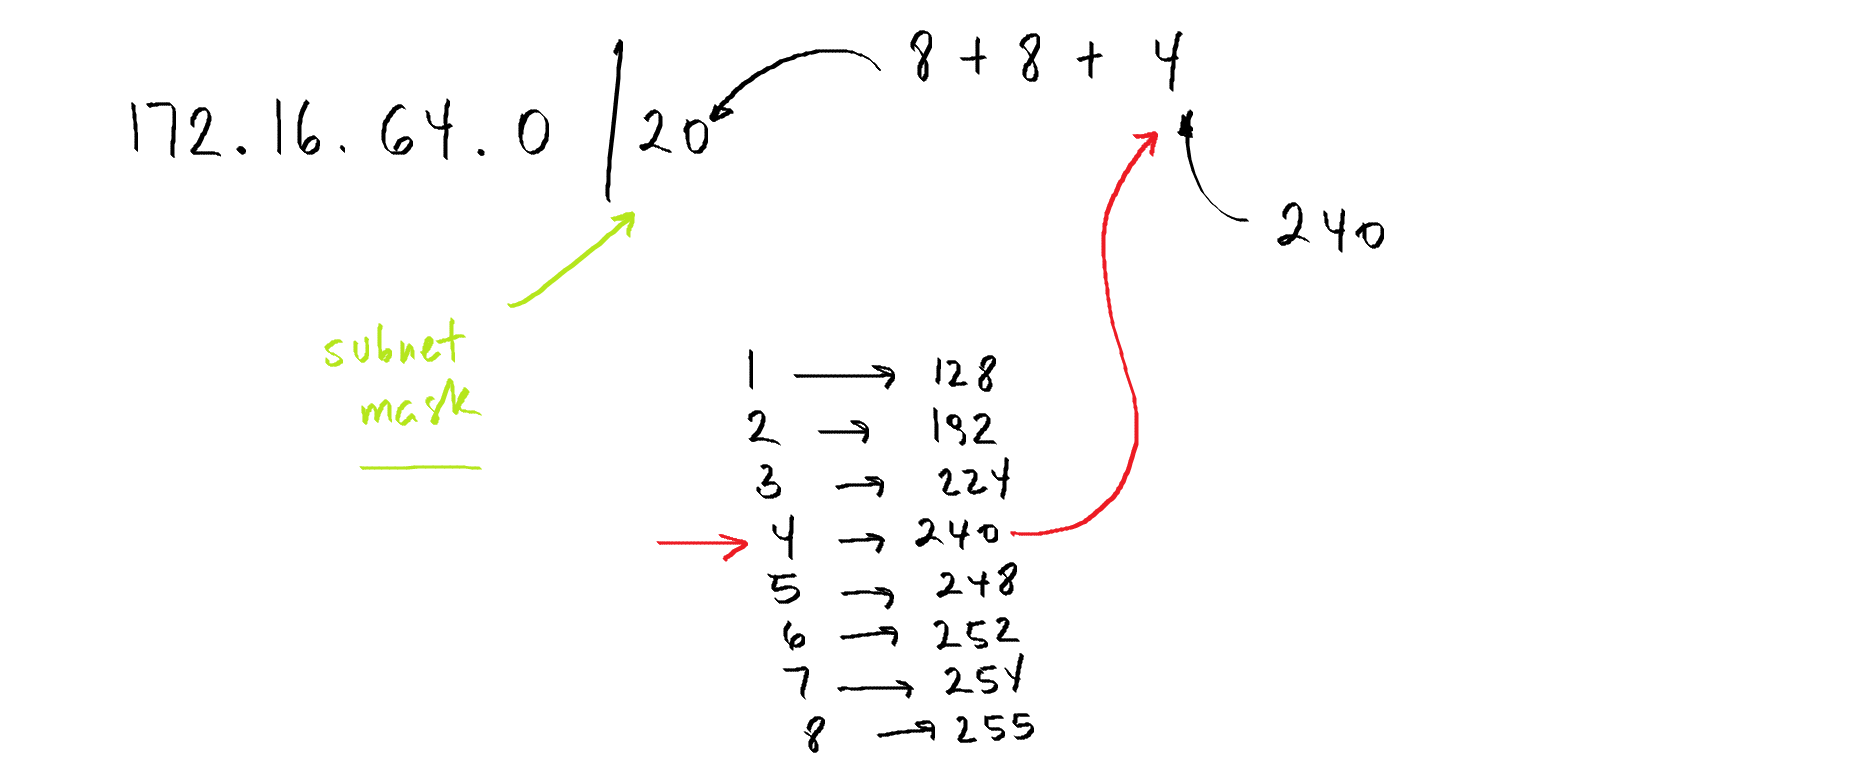 8 + 8 + 4
172.16.64.0 /20
240
subnet
mask
1 → 128
2 → 192
3 → 224
4 → 240
5 → 248
6 → 252
7 → 254
8 → 255